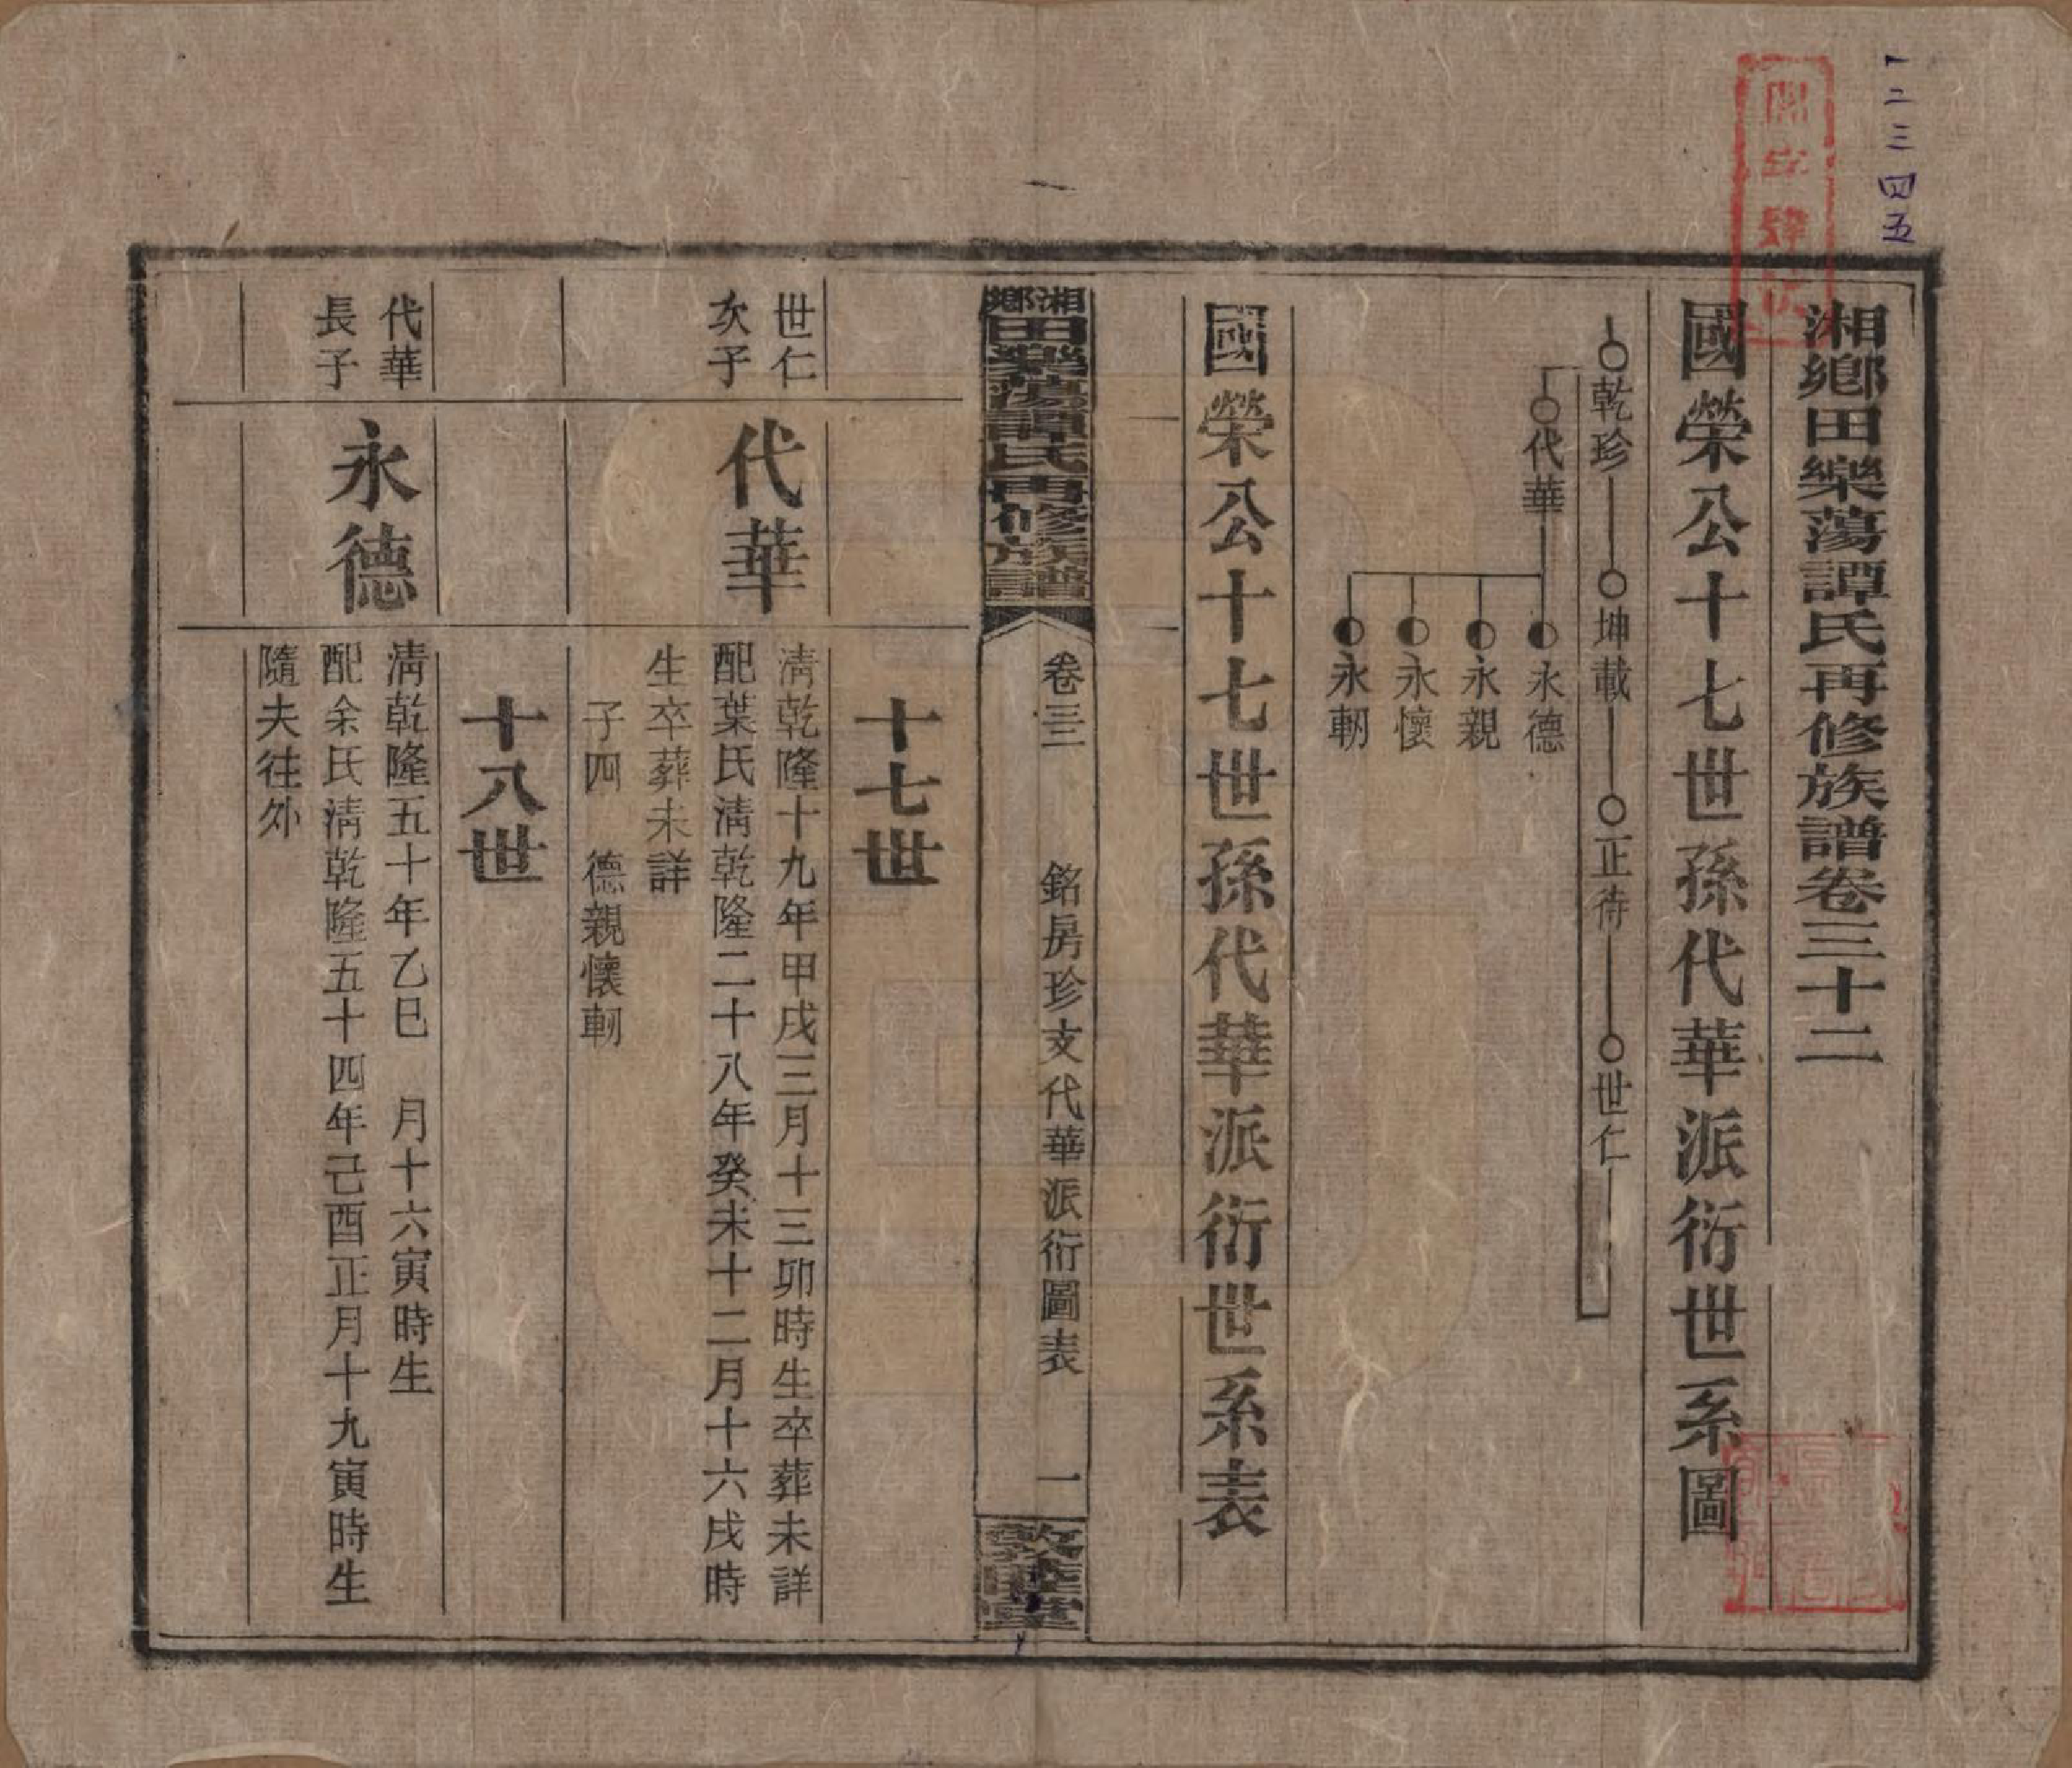 一二三四五
湘鄉田樂蕩譚氏再修族譜卷三十二
國榮公十七世孫代華派衍世系圖
乾珍 坤載 正待 世仁
代華
永德
永親
永懷
永軔
國榮公十七世孫代華派衍世系表
湘鄉田樂蕩譚氏再修族譜 卷三三 銘房珍支代華派衍圖表 一 敦睦堂
十七世
世仁次子
代華
清乾隆十九年甲戌三月十三卯時生卒葬未詳
配葉氏清乾隆二十八年癸未十二月十六戌時
生卒葬未詳
子四 德親懷軔
十八世
代華長子
永德
清乾隆五十年乙巳 月十六寅時生
配余氏清乾隆五十四年己酉正月十九寅時生
隨夫往外